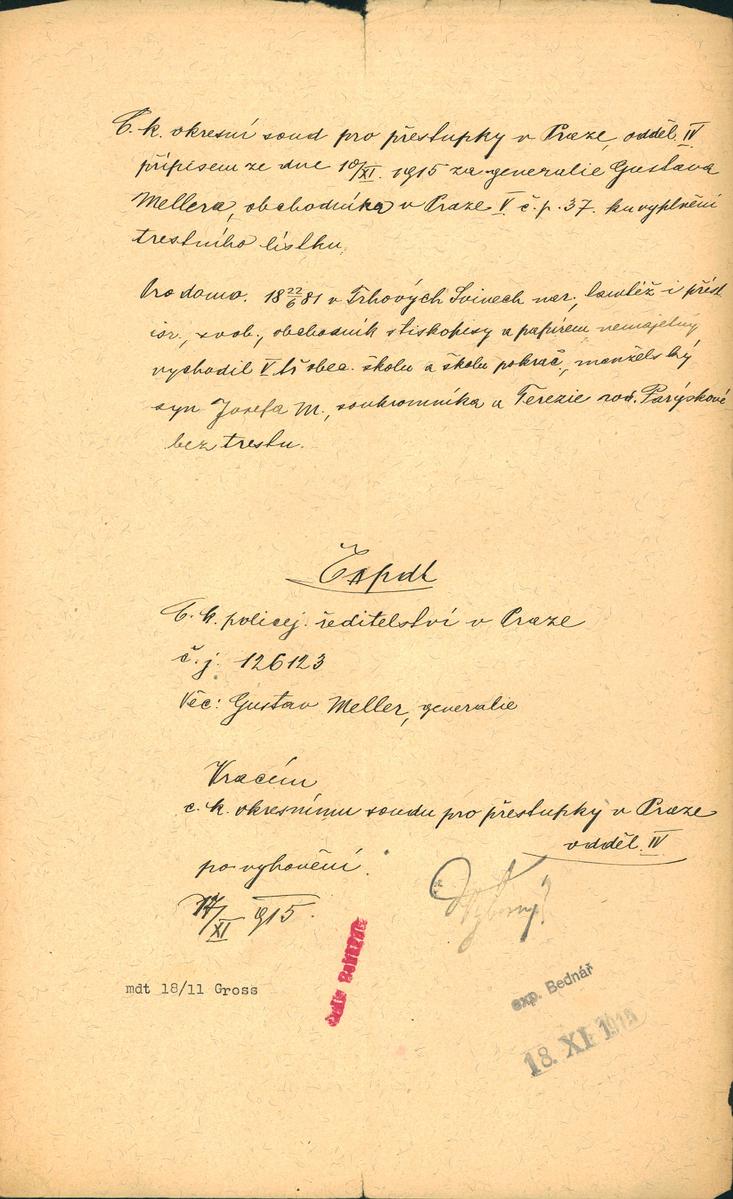 C. k. okresní soud pro přestupky v Praze, odděl. IV
přípisem ze dne 10/XI. 1915 za generalie Gustava
Mellera, obchodníka v Praze V č. p. 37. ku vyplnění
trestního lístku.
Pro domo. 18 22/6 81 v Trhových Svinech nar., tamtéž i přísl.
isr., svob., obchodník s tiskopisy a papírem nemajetný
vychodil V tř. obec. školu a školu pokrač., manželský
syn Josefa M., soukromníka a Terezie roz. Parýskové
bez trestu.
C. k. policej. ředitelství v Praze
č. j. 126123
Věc: Gustav Meller, generalie
Vracím
c. k. okresnímu soudu pro přestupky v Praze
odděl. IV
po vyhovění.
17/XI 1915.
mdt 18/11 Gross
exp. Bednář
18. XI. 1915